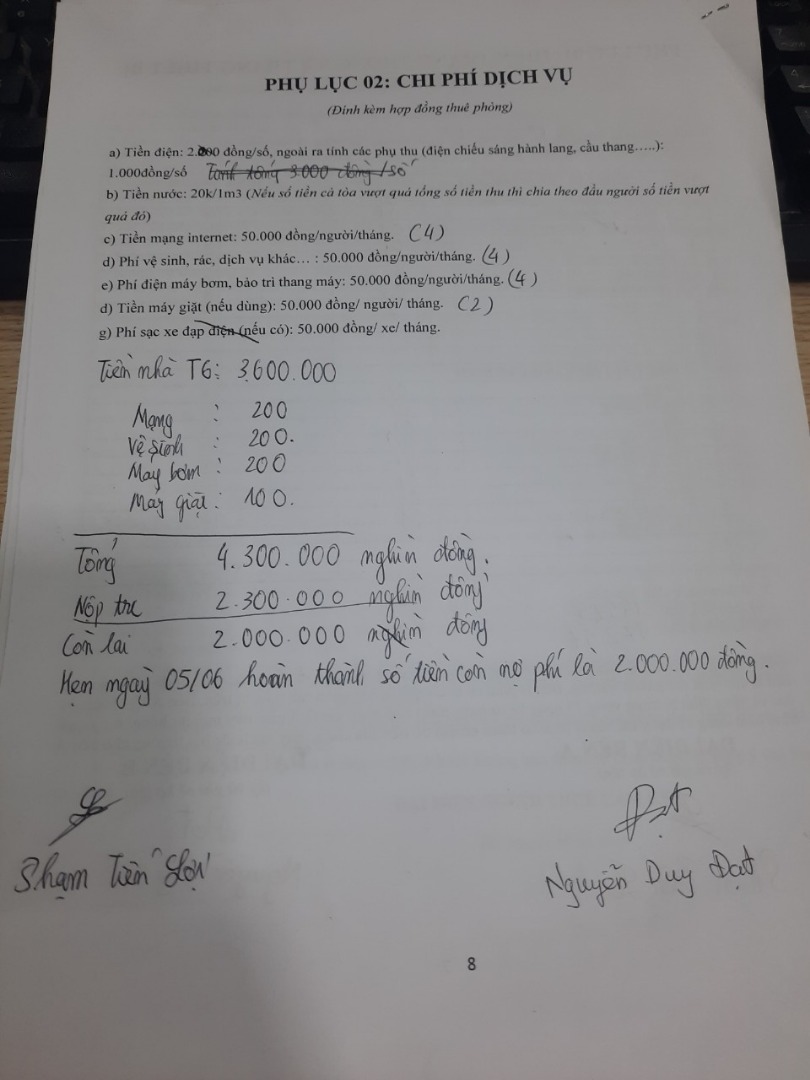 PHỤ LỤC 02: CHI PHÍ DỊCH VỤ
(Đính kèm hợp đồng thuê phòng)
a) Tiền điện: 2.000 đồng/số, ngoài ra tính các phụ thu (điện chiếu sáng hành lang, cầu thang…..):
1.000đồng/số Tổng 3000 đồng/số
b) Tiền nước: 20k/1m3 (Nếu số tiền cả tòa vượt quá tổng số tiền thu thì chia theo đầu người số tiền vượt
quá đó)
c) Tiền mạng internet: 50.000 đồng/người/tháng. (4)
d) Phí vệ sinh, rác, dịch vụ khác… : 50.000 đồng/người/tháng. (4)
e) Phí điện máy bơm, bảo trì thang máy: 50.000 đồng/người/tháng. (4)
d) Tiền máy giặt (nếu dùng): 50.000 đồng/ người/ tháng. (2)
g) Phí sạc xe đạp điện (nếu có): 50.000 đồng/ xe/ tháng.
Tiền nhà T6: 3.600.000
Mạng : 200
Vệ sinh : 200.
Máy bơm : 200
Máy giặt : 100.
Tổng 4.300.000 nghìn đồng.
Nộp trc 2.300.000 nghìn đồng
Còn lại 2.000.000 nghìn đồng
Hẹn ngày 05/06 hoàn thành số tiền còn nợ phí là 2.000.000 đồng.
Phạm Tiến
Đạt
Nguyễn Duy Đạt
8